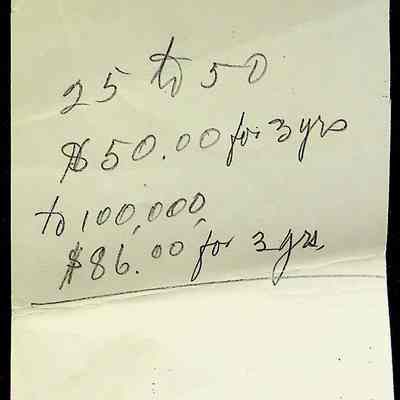 25 to 50
$50.00 for 3 yrs
to 100,000,
$86.00 for 3 yrs.